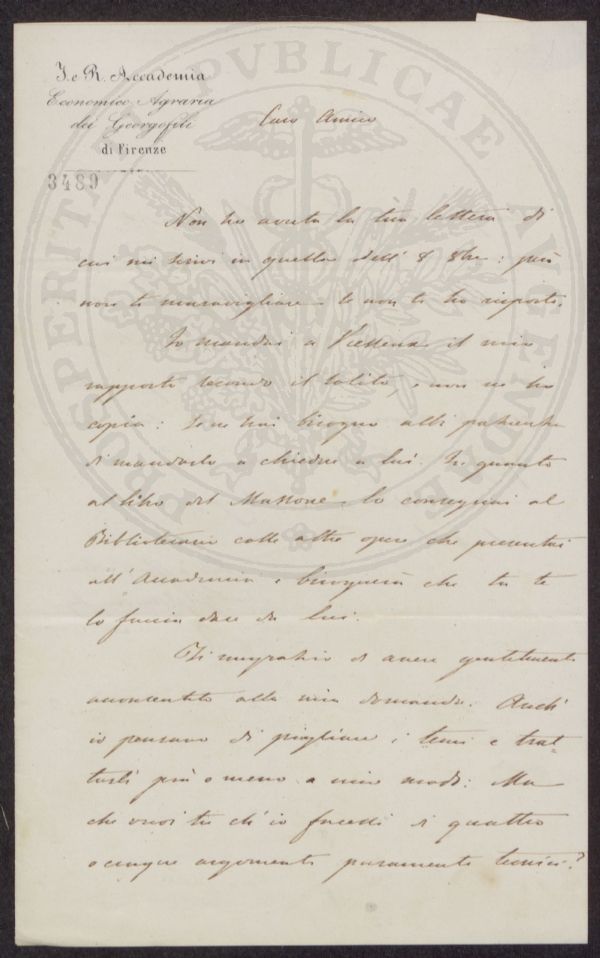 I. e R. Accademia
Economico Agraria
dei Georgofili
di Firenze
3489
PROSPERITATI PVBLICAE AVGENDAE
Caro Amico
Non ho avuta la tua lettera di
cui mi scrivi in quella dell' 8 8bre: però
non ti maravigliare se non ti ho risposto.
Io mandai a Vieusseux il mio
rapporto secondo il solito, e non ne ho
copia: se ne hai bisogno abbi pazienza
di mandarlo a chiedere a lui. In quanto
al libro del lo consegnai al
Bibliotecario colle altre opere che presentai
all' Accademia e bisognerà che tu te
lo faccia dare da lui.
Ti ringrazio di avere gentilmente
acconsentito alla mia domanda. Anch'
io pensavo di pigliare i temi e trat-
tarli più o meno a mio modo: Ma
che vuoi tu ch' io facessi di quattro
o cinque argomenti puramente tecnici?